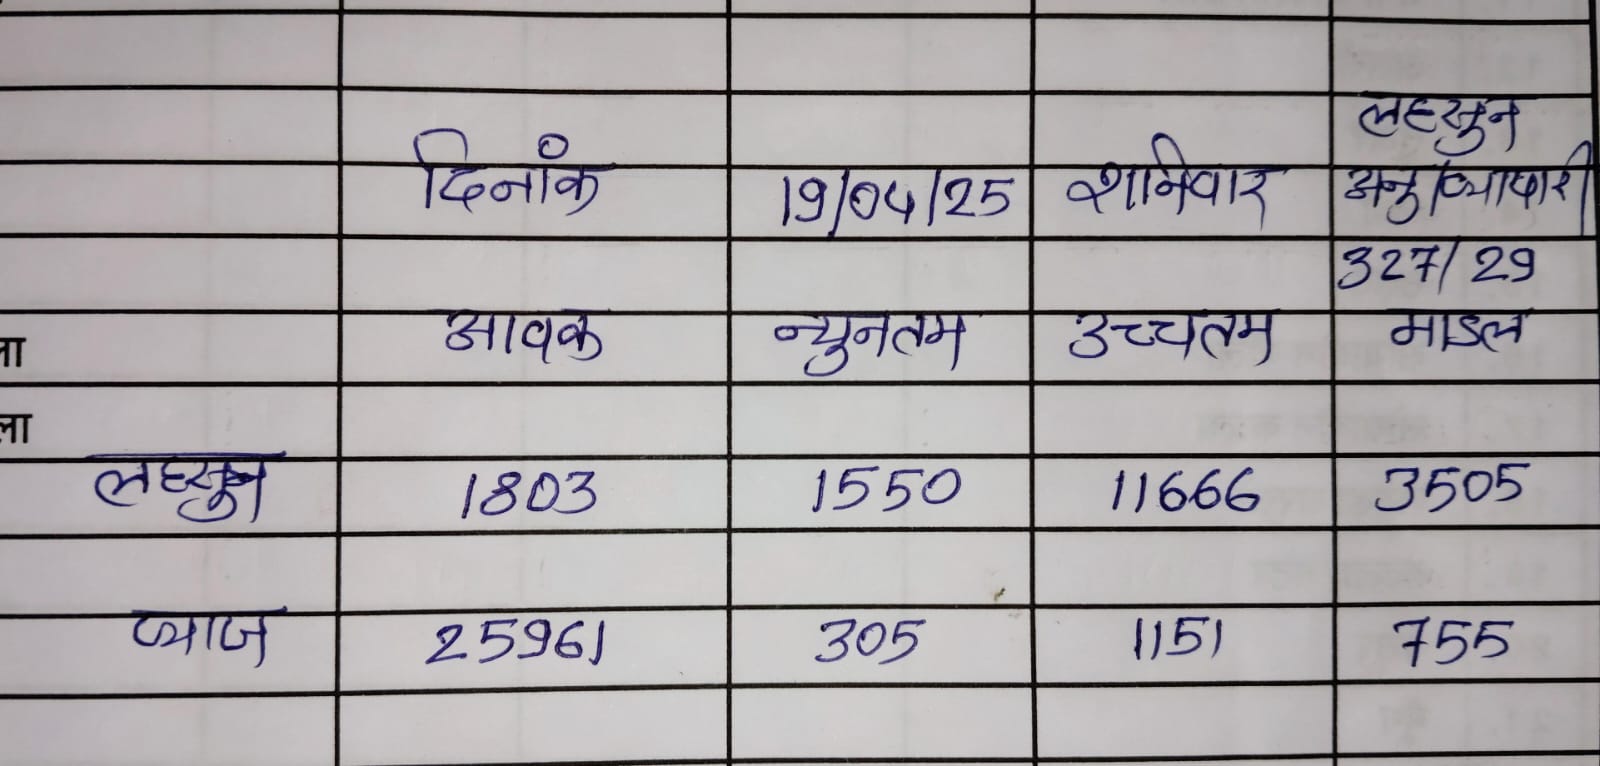 लहसुन
दिनांक 19/04/25 शनिवार अनु/व्यापारी
327/29
ला आवक न्युनतम उच्चतम माडल
ला
लहसुन 1803 1550 11666 3505
प्याज 25961 305 1151 755